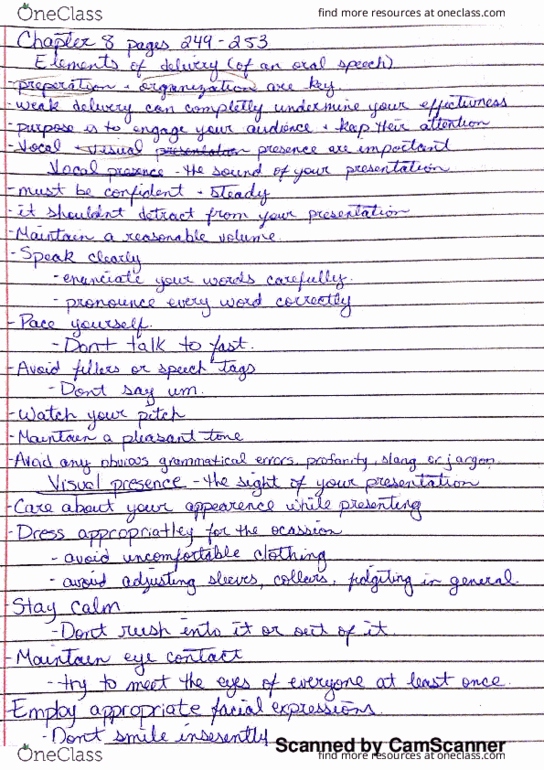 OneClass
find more resources at oneclass.com
Chapter 8 pages 249-253
Elements of delivery (of an oral speech)
-preperation + organization are key.
-weak delivery can completly undermine your effectiveness
-purpose is to engage your audience + keep their attention
-Vocal + visual presentation presence are important
Vocal presence - the sound of your presentation
-must be confident + steady
-it shouldnt detract from your presentation
-Maintain a reasonable volume.
-Speak clearly
-enunciate your words carefully.
-pronounce every word correctly
-Pace yourself.
-Dont talk to fast.
-Avoid fillers or speech tags
-Dont say um.
-Watch your pitch
-Maintain a pleasant tone
-Avoid any obvious grammatical errors, profanity, slang or jargon.
Visual presence - the sight of your presentation
-Care about your appearence while presenting
-Dress appropriatley for the ocassion
-avoid uncomfortable clothing
-avoid adjusting sleeves, collars, fidgiting in general.
Stay calm
-Dont rush into it or out of it.
-Maintain eye contact
-try to meet the eyes of everyone at least once.
Employ appropriate facial expressions.
-Dont smile insesently
Scanned by CamScanner
OneClass
find more resources at oneclass.com